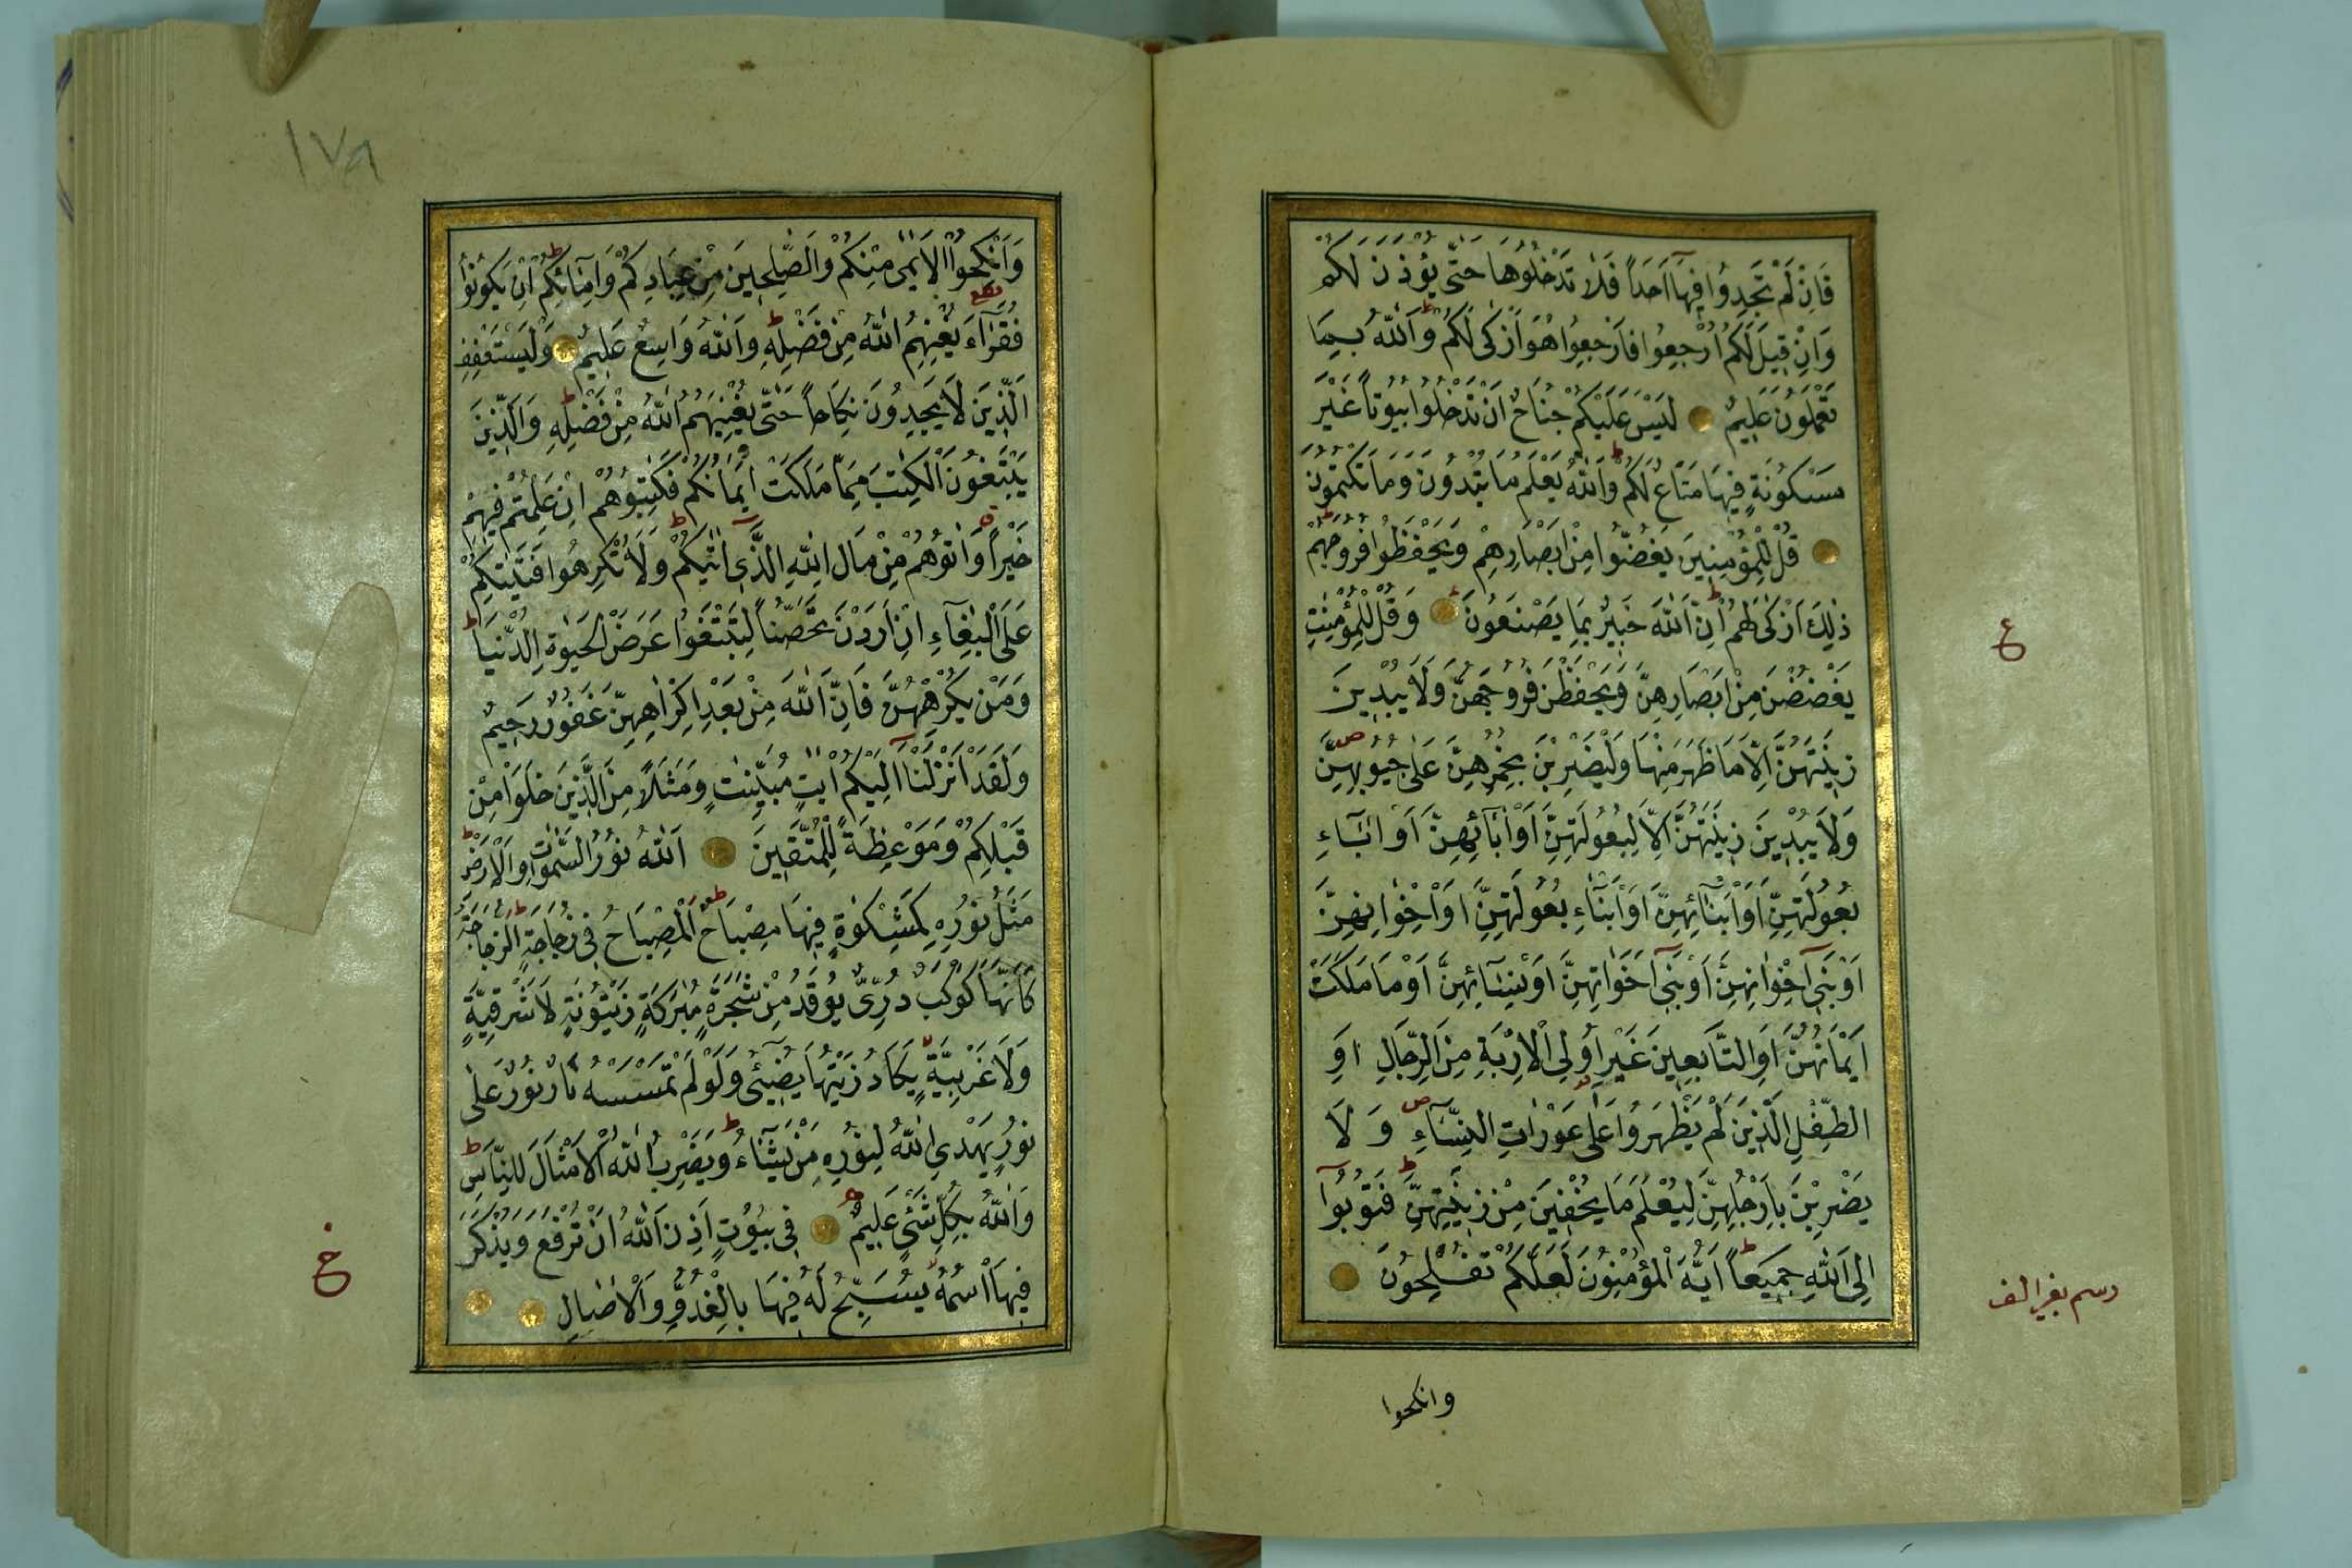 فَاِنْ لَمْ تَجِدُوا فِيهَا اَحَدًا فَلَا تَدْخُلُوهَا حَتّٰى يُؤْذَنَ لَكُمْ
وَاِنْ قِيلَ لَكُمُ ارْجِعُوا فَارْجِعُوا هُوَ اَزْكٰى لَكُمْ وَاللّٰهُ بِمَا
تَعْمَلُونَ عَلِيمٌ لَيْسَ عَلَيْكُمْ جُنَاحٌ اَنْ تَدْخُلُوا بُيُوتًا غَيْرَ
مَسْكُونَةٍ فِيهَا مَتَاعٌ لَكُمْ وَاللّٰهُ يَعْلَمُ مَا تُبْدُونَ وَمَا تَكْتُمُونَ
قُلْ لِلْمُؤْمِنِينَ يَغُضُّوا مِنْ اَبْصَارِهِمْ وَيَحْفَظُوا فُرُوجَهُمْ
ذٰلِكَ اَزْكٰى لَهُمْ اِنَّ اللّٰهَ خَبِيرٌ بِمَا يَصْنَعُونَ وَقُلْ لِلْمُؤْمِنٰتِ
يَغْضُضْنَ مِنْ اَبْصَارِهِنَّ وَيَحْفَظْنَ فُرُوجَهُنَّ وَلَا يُبْدِينَ
زِينَتَهُنَّ اِلَّا مَا ظَهَرَ مِنْهَا وَلْيَضْرِبْنَ بِخُمُرِهِنَّ عَلٰى جُيُوبِهِنَّ
وَلَا يُبْدِينَ زِينَتَهُنَّ اِلَّا لِبُعُولَتِهِنَّ اَوْ اٰبَائِهِنَّ اَوْ اٰبَاءِ
بُعُولَتِهِنَّ اَوْ اَبْنَائِهِنَّ اَوْ اَبْنَاءِ بُعُولَتِهِنَّ اَوْ اِخْوٰانِهِنَّ
اَوْ بَنِى اِخْوٰانِهِنَّ اَوْ بَنِى اَخَوٰاتِهِنَّ اَوْ نِسَائِهِنَّ اَوْ مَا مَلَكَتْ
اَيْمَانُهُنَّ اَوِ التَّابِعِينَ غَيْرِ اُولِى الْاِرْبَةِ مِنَ الرِّجَالِ اَوِ
الطِّفْلِ الَّذِينَ لَمْ يَظْهَرُوا عَلٰى عَوْرَاتِ النِّسَآءِ وَلَا
يَضْرِبْنَ بِاَرْجُلِهِنَّ لِيُعْلَمَ مَا يُخْفِينَ مِنْ زِينَتِهِنَّ وَتُوبُوا
اِلَى اللّٰهِ جَمِيعًا اَيُّهَ الْمُؤْمِنُونَ لَعَلَّكُمْ تُفْلِحُونَ
ع
رسم بغير الف
وانكحوا
١٧٩
وَاَنْكِحُوا الْاَيٰمٰى مِنْكُمْ وَالصّٰلِحِينَ مِنْ عِبَادِكُمْ وَاِمَائِكُمْ اِنْ يَكُونُوا
فُقَرَآءَ يُغْنِهِمُ اللّٰهُ مِنْ فَضْلِهِ وَاللّٰهُ وَاسِعٌ عَلِيمٌ وَلْيَسْتَعْفِفِ
الَّذِينَ لَا يَجِدُونَ نِكَاحًا حَتّٰى يُغْنِيَهُمُ اللّٰهُ مِنْ فَضْلِهِ وَالَّذِينَ
يَبْتَغُونَ الْكِتٰبَ مِمَّا مَلَكَتْ اَيْمَانُكُمْ فَكَاتِبُوهُمْ اِنْ عَلِمْتُمْ فِيهِمْ
خَيْرًا وَاٰتُوهُمْ مِنْ مَالِ اللّٰهِ الَّذِى اٰتٰيكُمْ وَلَا تُكْرِهُوا فَتَيٰتِكُمْ
عَلَى الْبِغَآءِ اِنْ اَرَدْنَ تَحَصُّنًا لِتَبْتَغُوا عَرَضَ الْحَيٰوةِ الدُّنْيَا
وَمَنْ يُكْرِهْهُنَّ فَاِنَّ اللّٰهَ مِنْ بَعْدِ اِكْرَاهِهِنَّ غَفُورٌ رَحِيمٌ
وَلَقَدْ اَنْزَلْنَا اِلَيْكُمْ اٰيٰتٍ مُبَيِّنٰتٍ وَمَثَلًا مِنَ الَّذِينَ خَلَوْا مِنْ
قَبْلِكُمْ وَمَوْعِظَةً لِلْمُتَّقِينَ اَللّٰهُ نُورُ السَّمٰوَاتِ وَالْاَرْضِ
مَثَلُ نُورِهِ كَمِشْكٰوةٍ فِيهَا مِصْبَاحٌ اَلْمِصْبَاحُ فِى زُجَاجَةٍ الزُّجَاجَةُ
كَاَنَّهَا كَوْكَبٌ دُرِّىٌّ يُوقَدُ مِنْ شَجَرَةٍ مُبٰرَكَةٍ زَيْتُونَةٍ لَا شَرْقِيَّةٍ
وَلَا غَرْبِيَّةٍ يَكَادُ زَيْتُهَا يُضِيئُ وَلَوْ لَمْ تَمْسَسْهُ نَارٌ نُورٌ عَلٰى
نُورٍ يَهْدِى اللّٰهُ لِنُورِهِ مَنْ يَشَآءُ وَيَضْرِبُ اللّٰهُ الْاَمْثَالَ لِلنَّاسِ
وَاللّٰهُ بِكُلِّ شَىْءٍ عَلِيمٌ فِى بُيُوتٍ اَذِنَ اللّٰهُ اَنْ تُرْفَعَ وَيُذْكَرَ
فِيهَا اسْمُهُ يُسَبِّحُ لَهُ فِيهَا بِالْغُدُوِّ وَالْاٰصَالِ
خ